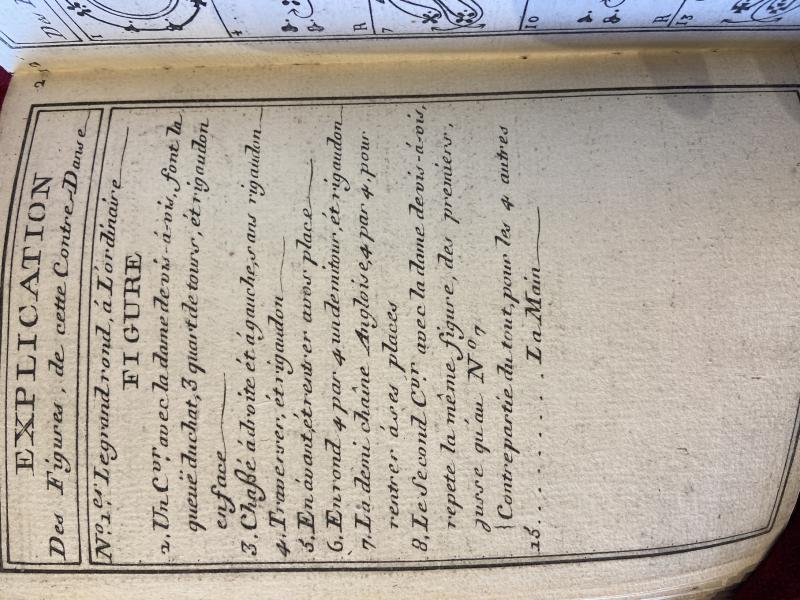 29
EXPLICATION
Des Figures, de cette Contre-Danse
N.º 1.er Le grand rond, á L'ordinaire
FIGURE
2. Un C.vr avec la dame de vis-á-vis, font la
queuë du chat, 3 quart de tours, ét rigaudon
en face
3. Chaßé á droite ét á gauche, sans rigaudon
4. Traverser, ét rigaudon
5. En avant, ét rentrer á vos place
6. En rond 4 par 4 un demi tour, ét rigaudon
7. La demi chaîne Angloise, 4 par 4, pour
rentrer á ses places
8. Le Second C.vr avec la dame de vis-á-vis,
repete la même figure, des premiers,
jusse qu'au N.º 7
{Contrepartie du tout, pour les 4 autres
15. . . . . . . . . . La Main
1
4
R
7
10
R
13